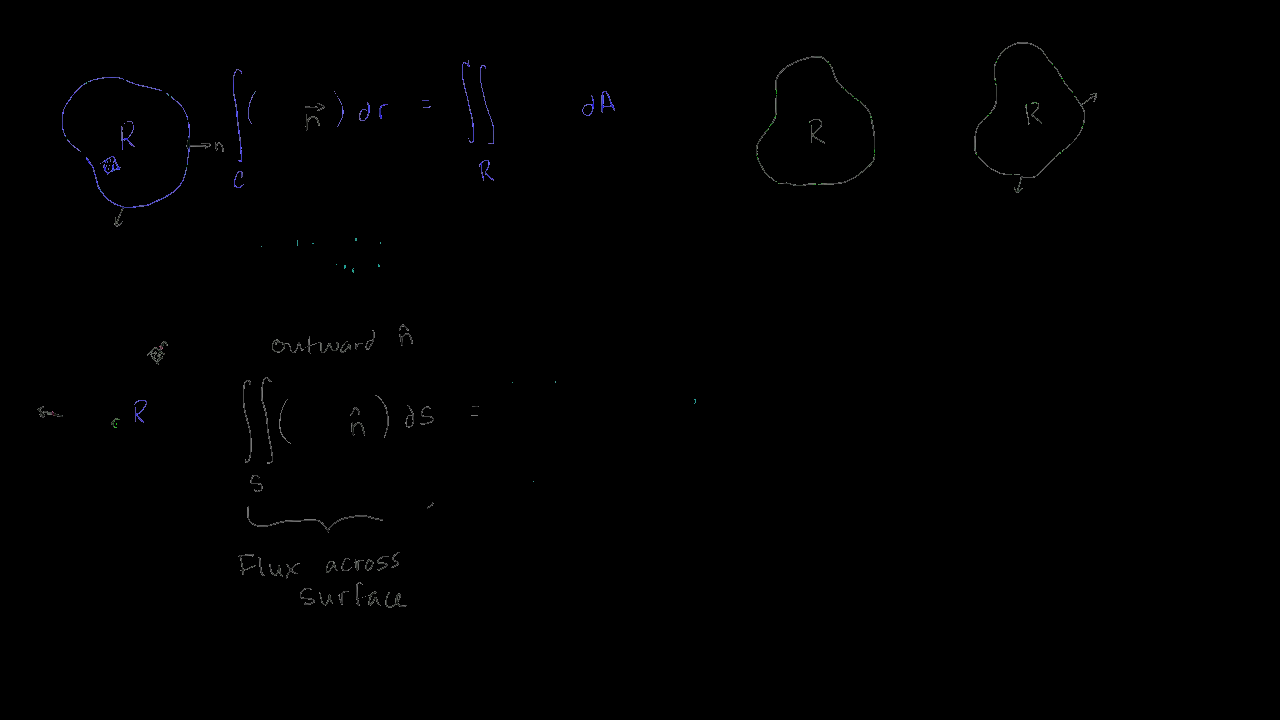 R n ∫_C ( n⃗ ) dr = ∬_R dA R R
outward n̂
R ∬_S ( n̂ ) dS =
Flux across
surface